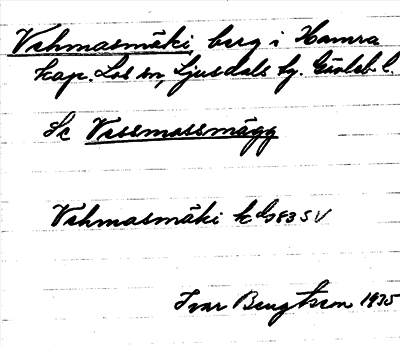 Vehmasmäki berg i Hamra
kap. Los sn, Ljusdals tg. Gävleb l.
Se Vessmassmägg
Vehmasmäki k bl 83 SV
Ivar Bengtsson 1935